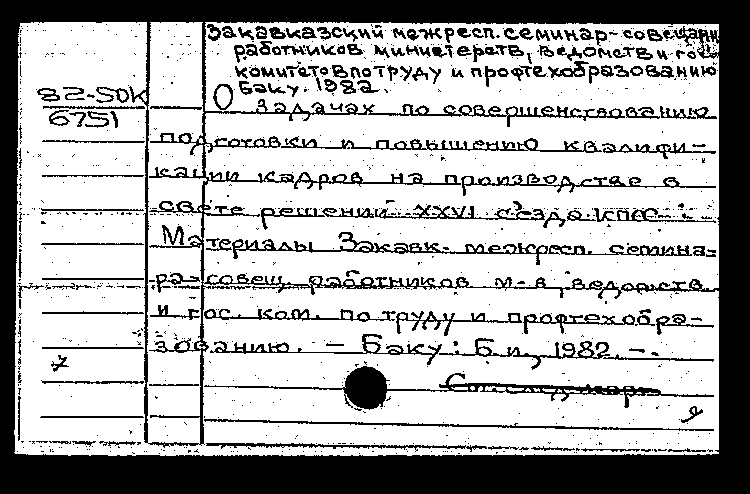 Закавказский межресп. семинар-совещани
работников министерств, ведомств и гос
комитетов по труду и профтехобразованию
Баку. 1982.
82-5DK
6751
О задачах по совершенствованию
подготовки и повышению квалифи-
кации кадров на производстве в
свете решений XXVI съезда КПСС :
Материалы Закавк. межресп. семина-
ра-совещ. работников м-в, ведомств
и гос. ком. по труду и профтехобра-
зованию. – Баку : Б. и., 1982. –.
7
См. след. карт.